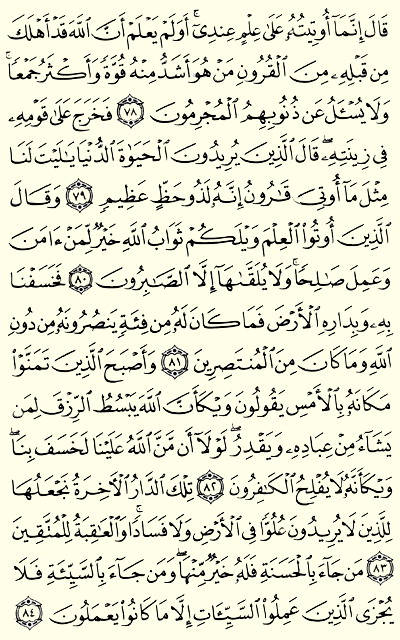 قَالَ إِنَّمَآ أُوتِيتُهُۥ عَلَىٰ عِلْمٍ عِندِىٓ ۚ أَوَلَمْ يَعْلَمْ أَنَّ ٱللَّهَ قَدْ أَهْلَكَ
مِن قَبْلِهِۦ مِنَ ٱلْقُرُونِ مَنْ هُوَ أَشَدُّ مِنْهُ قُوَّةً وَأَكْثَرُ جَمْعًا ۚ
وَلَا يُسْـَٔلُ عَن ذُنُوبِهِمُ ٱلْمُجْرِمُونَ ٧٨ فَخَرَجَ عَلَىٰ قَوْمِهِۦ
فِى زِينَتِهِۦ ۖ قَالَ ٱلَّذِينَ يُرِيدُونَ ٱلْحَيَوٰةَ ٱلدُّنْيَا يَـٰلَيْتَ لَنَا
مِثْلَ مَآ أُوتِىَ قَـٰرُونُ إِنَّهُۥ لَذُو حَظٍّ عَظِيمٍ ٧٩ وَقَالَ
ٱلَّذِينَ أُوتُوا۟ ٱلْعِلْمَ وَيْلَكُمْ ثَوَابُ ٱللَّهِ خَيْرٌ لِّمَنْ ءَامَنَ
وَعَمِلَ صَـٰلِحًا ۚ وَلَا يُلَقَّىٰهَآ إِلَّا ٱلصَّـٰبِرُونَ ٨٠ فَخَسَفْنَا
بِهِۦ وَبِدَارِهِ ٱلْأَرْضَ فَمَا كَانَ لَهُۥ مِن فِئَةٍ يَنصُرُونَهُۥ مِن دُونِ
ٱللَّهِ وَمَا كَانَ مِنَ ٱلْمُنتَصِرِينَ ٨١ وَأَصْبَحَ ٱلَّذِينَ تَمَنَّوْا۟
مَكَانَهُۥ بِٱلْأَمْسِ يَقُولُونَ وَيْكَأَنَّ ٱللَّهَ يَبْسُطُ ٱلرِّزْقَ لِمَن
يَشَآءُ مِنْ عِبَادِهِۦ وَيَقْدِرُ ۖ لَوْلَآ أَن مَّنَّ ٱللَّهُ عَلَيْنَا لَخَسَفَ بِنَا ۖ
وَيْكَأَنَّهُۥ لَا يُفْلِحُ ٱلْكَـٰفِرُونَ ٨٢ تِلْكَ ٱلدَّارُ ٱلْـَٔاخِرَةُ نَجْعَلُهَا
لِلَّذِينَ لَا يُرِيدُونَ عُلُوًّا فِى ٱلْأَرْضِ وَلَا فَسَادًا ۚ وَٱلْعَـٰقِبَةُ لِلْمُتَّقِينَ
٨٣ مَن جَآءَ بِٱلْحَسَنَةِ فَلَهُۥ خَيْرٌ مِّنْهَا ۖ وَمَن جَآءَ بِٱلسَّيِّئَةِ فَلَا
يُجْزَى ٱلَّذِينَ عَمِلُوا۟ ٱلسَّيِّـَٔاتِ إِلَّا مَا كَانُوا۟ يَعْمَلُونَ ٨٤